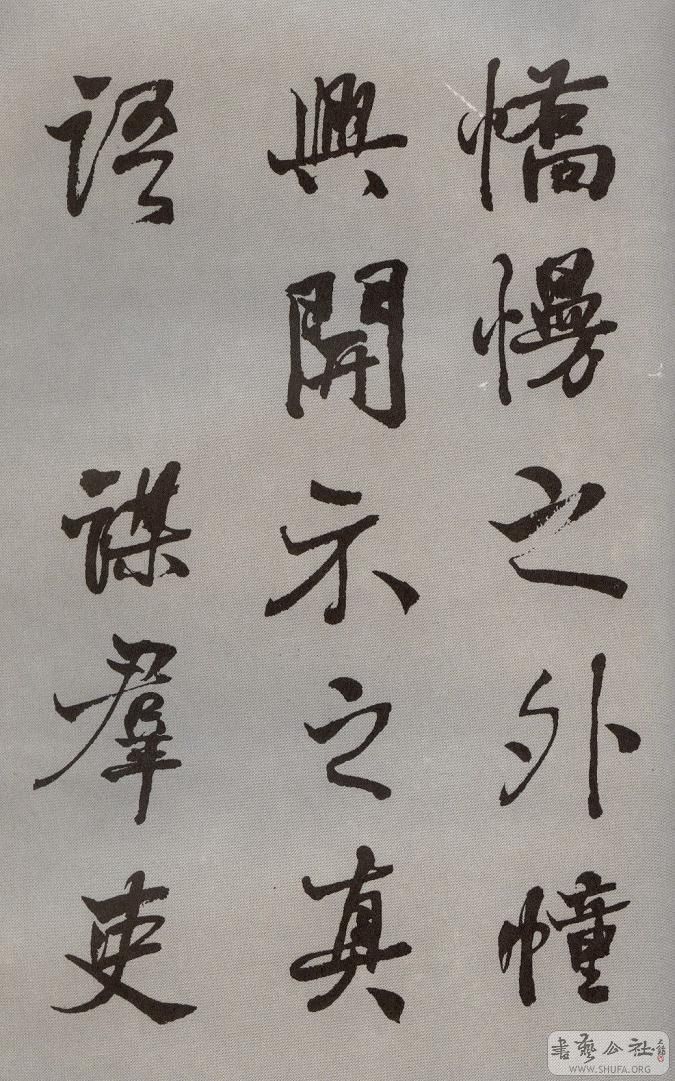 憍慢之外幢
興開示之真
語 謀群吏
書藝公社
WWW.SHUFA.ORG